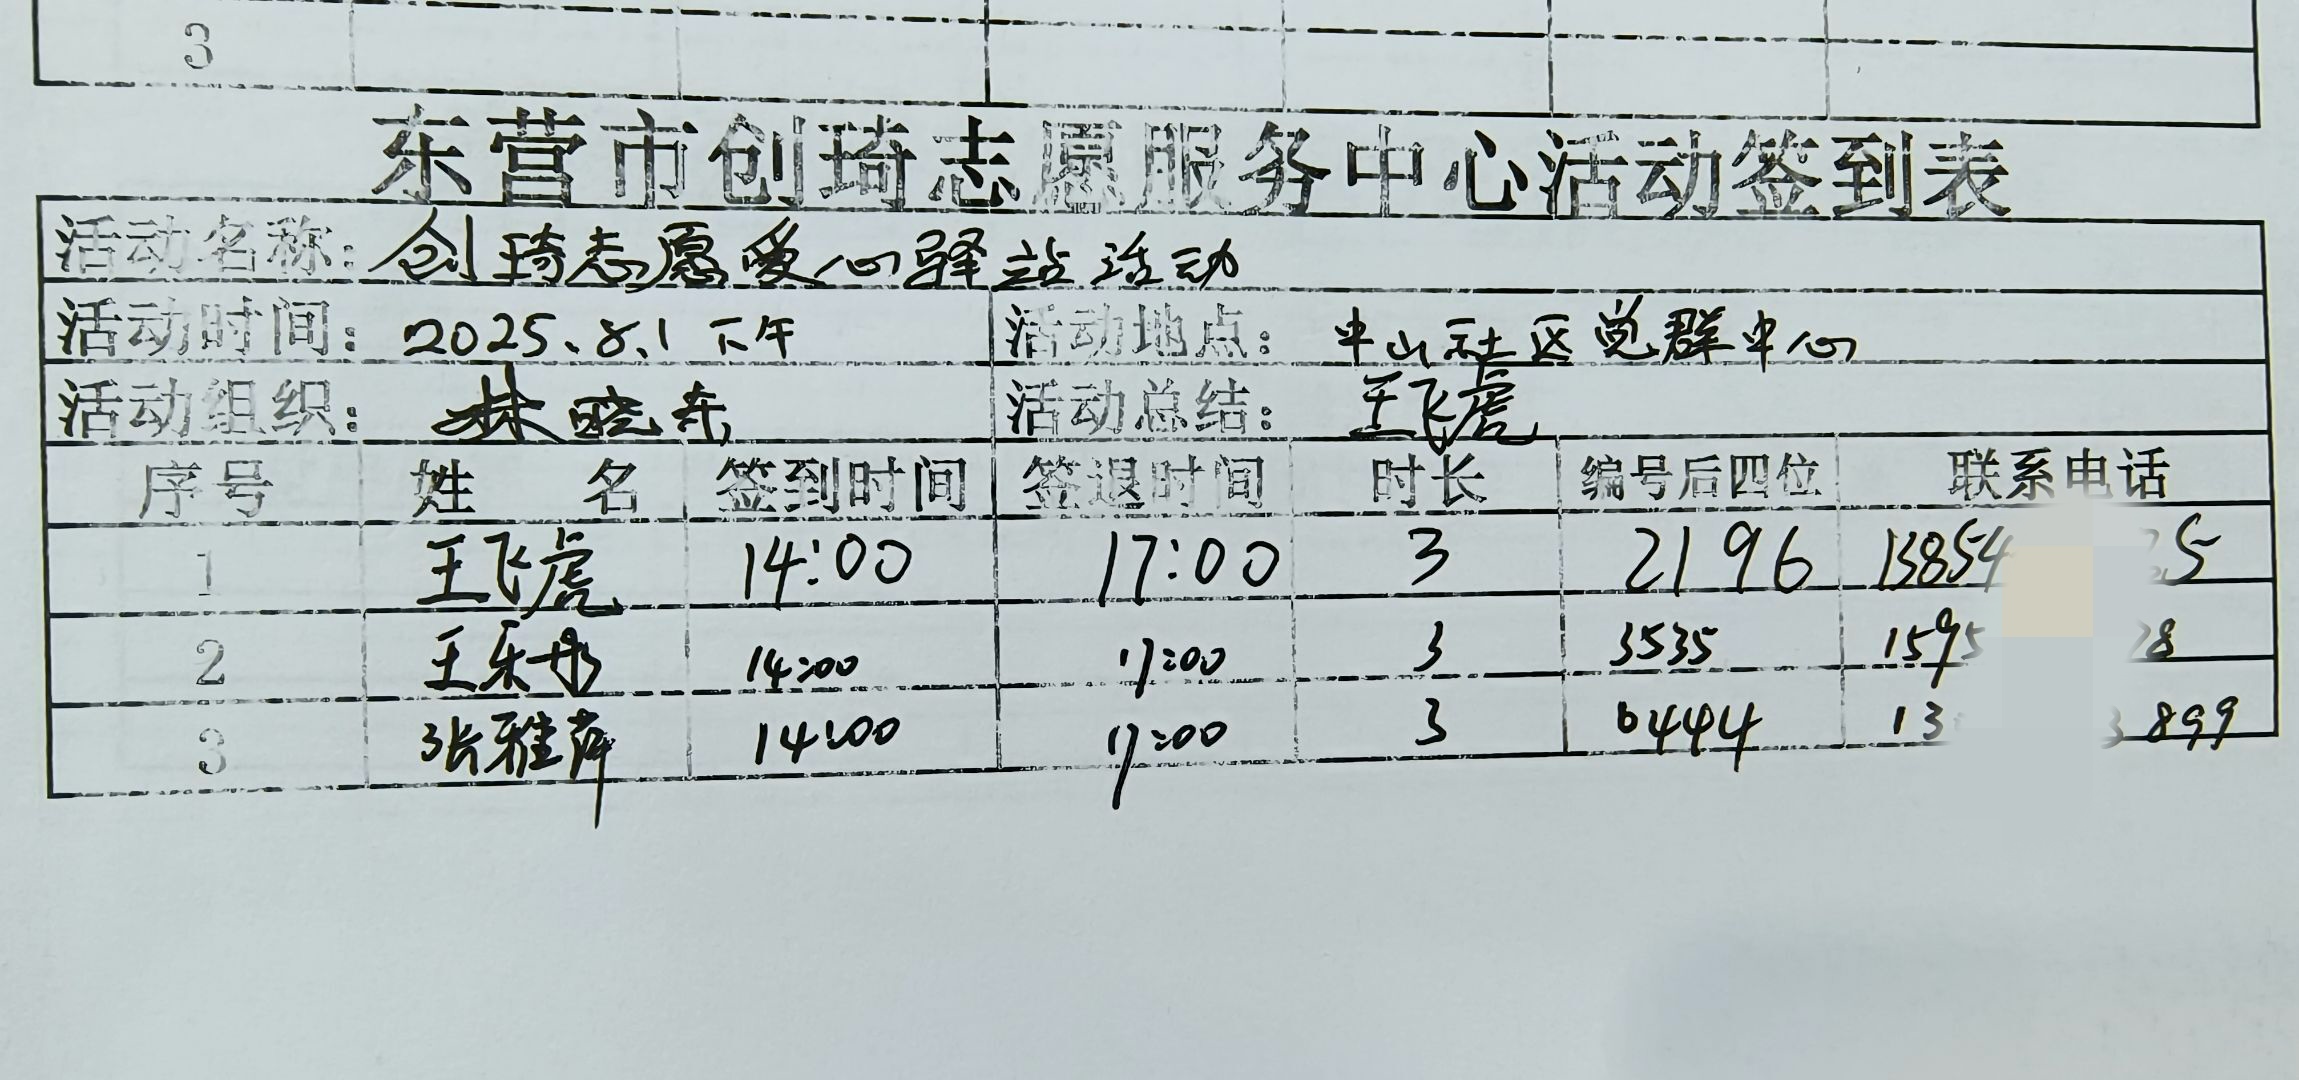 3
东营市创琦志愿服务中心活动签到表
活动名称：创琦志愿爱心驿站活动
活动时间：2025.8.1下午 活动地点：中山社区党群中心
活动组织：林晓东 活动总结：王飞虎
序号 姓名 签到时间 签退时间 时长 编号后四位 联系电话
1 王飞虎 14:00 17:00 3 2196 13854 25
2 王乐丹 14:00 17:00 3 3535 1595 28
3 张雅萍 14:00 17:00 3 6444 13 3899